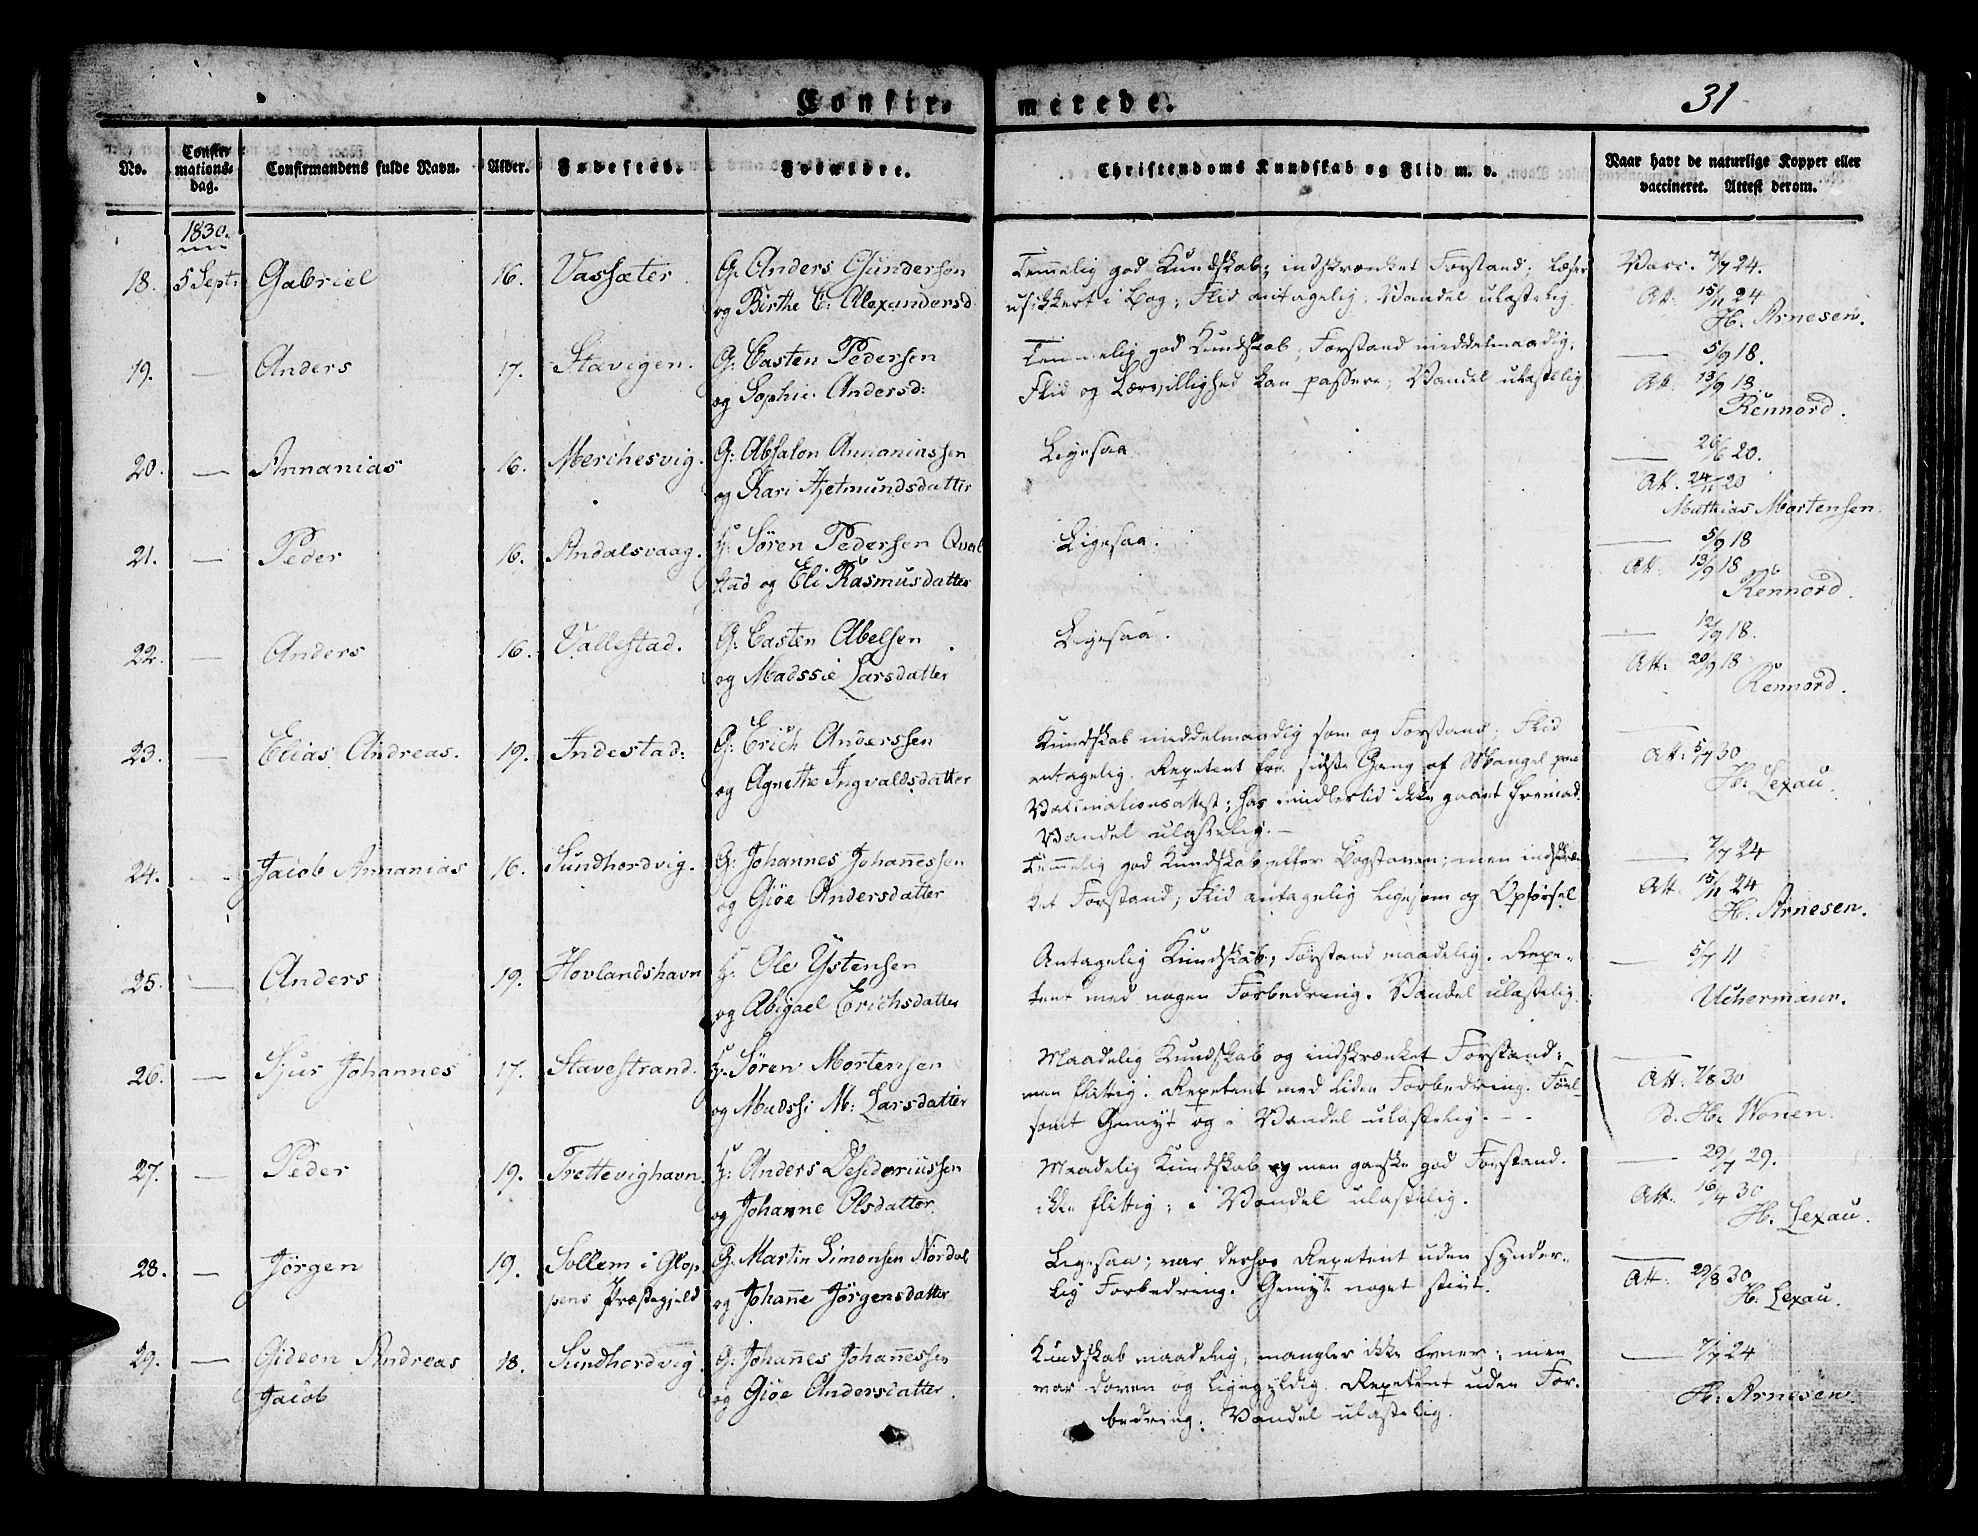 Confir- merede. 31
No. Confirmations-dag. Confirmandens fulde Navn. Alder. Fødested. Forældre. Christendoms Kundskab og Flid m. v. Naar havt de naturlige Kopper eller vaccineret. Attest derom.
1830.
18. 5 Sept: Gabriel 16. Vassæter G: Anders Gundersen Temmelig god Kundskab; indskrænket Forstand; Læser Vacc. 7/7 24.
og Birthe E: Alexandersd usikkert i Bog; Flid antagelig; Vandel ulastelig Att: 15/11 24
H. Arnesen.
19. — Anders 17. Stavigen. G: Casten Pedersen Temmelig god Kundskab; Forstand middelmaadig, — 5/9 18.
og Sophie Andersd: Flid og Lærvillighed kan passere; Vandel ulastelig Att: 13/9 18.
Rennord.
20. — Annanias 16. Merchesvig. G: Absalon Annaniassen Ligesaa — 20/6 20.
og Kari Hjetmundsdatter Att. 24/11 20
Mathias Mortensen.
21. — Peder 16. Andalsvaag. Søren Pedersen Qval Ligesaa. — 5/9 18
stad og Eli Rasmusdatter Att. 13/9 18
Rennord.
22. — Anders 16. Vallestad. G: Casten Abelsen Ligesaa. — 12/9 18.
og Madssie Larsdatter Att: 20/9 18
Rennord.
23. — Elias Andreas. 19. Indestad: G: Erich Anderssen Kundskab middelmaadig som og Forstand; Flid —
og Agnethe Ingvaldsdatter antagelig. Repetent fra sidste Gang af Mangel paa Att: 5/7 30
Vaccinationsattest; har imidlertid ikke gaaet fremad. H. Lexau.
Vandel ulastelig. —
24. — Jacob Annanias 16. Sundhordvig. G: Johannes Johannessen Temmelig god Kundskab efter Bogstaven; men indskræn — 7/7 24
og Giøe Andersdatter ket Forstand; Flid antagelig ligesom og Opførsel Att. 15/11 24
H. Arnesen.
25. — Anders 19. Hovlandshavn Ole Ystensen Antagelig Kundskab; Forstand maadelig. Repe- — 5/7 11
og Abigael Erichsdatter tent med nogen Forbedring. Vandel ulastelig. Uchermann.
26. — Sjur Johannes 17. Stavestrand. Søren Mortensen Maadelig Kundskab og indskrænket Forstand; —
og Madssi M: Larsdatter men flittig. Repetent med liden Forbedring. Føiel- Att: 7/8 30
somt Gemyt og i Vandel ulastelig. — d. H. Wonen.
27. — Peder 19. Trettevighavn. Anders Desideriussen Maadelig Kundskab men ganske god Forstand. — 29/7 29.
og Johanne Olsdatter. ikke flittig; i Vandel ulastelig. Att. 16/4 30
H. Lexau.
28. — Jörgen 19. Sollem i Glop G. Martin Simonsen Nordal Ligesaa; var derhos Repetent uden synder- —
pens Præstegjeld og Johanne Jörgensdatter lig Forbedring. Gemyt noget stivt. Att: 29/8 30
H. Lexau.
29. — Gideon Andreas 18. Sundhordvig G. Johannes Johannessen Kundskab maadelig, mangler ikke Evner; men — 7/7 24
Jacob og Giøe Andersdatter. var doven og ligegyldig. Repetent uden For- H. Arnesen.
bedring. Vandel ulastelig.